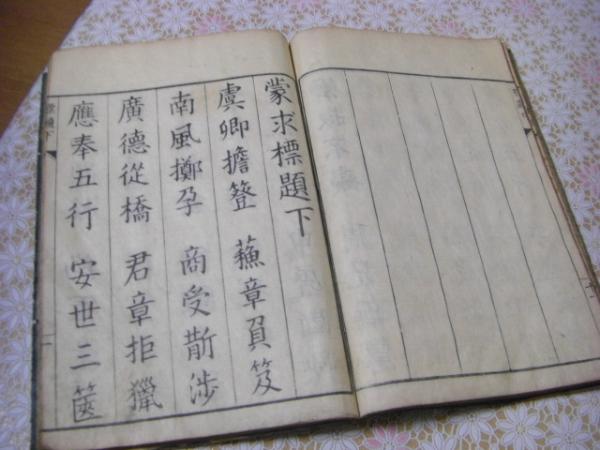 蒙求標題下
虞卿擔簦　蘓章負笈
南風擲孕　商受斮涉
廣德從橋　君章拒獵
應奉五行　安世三篋